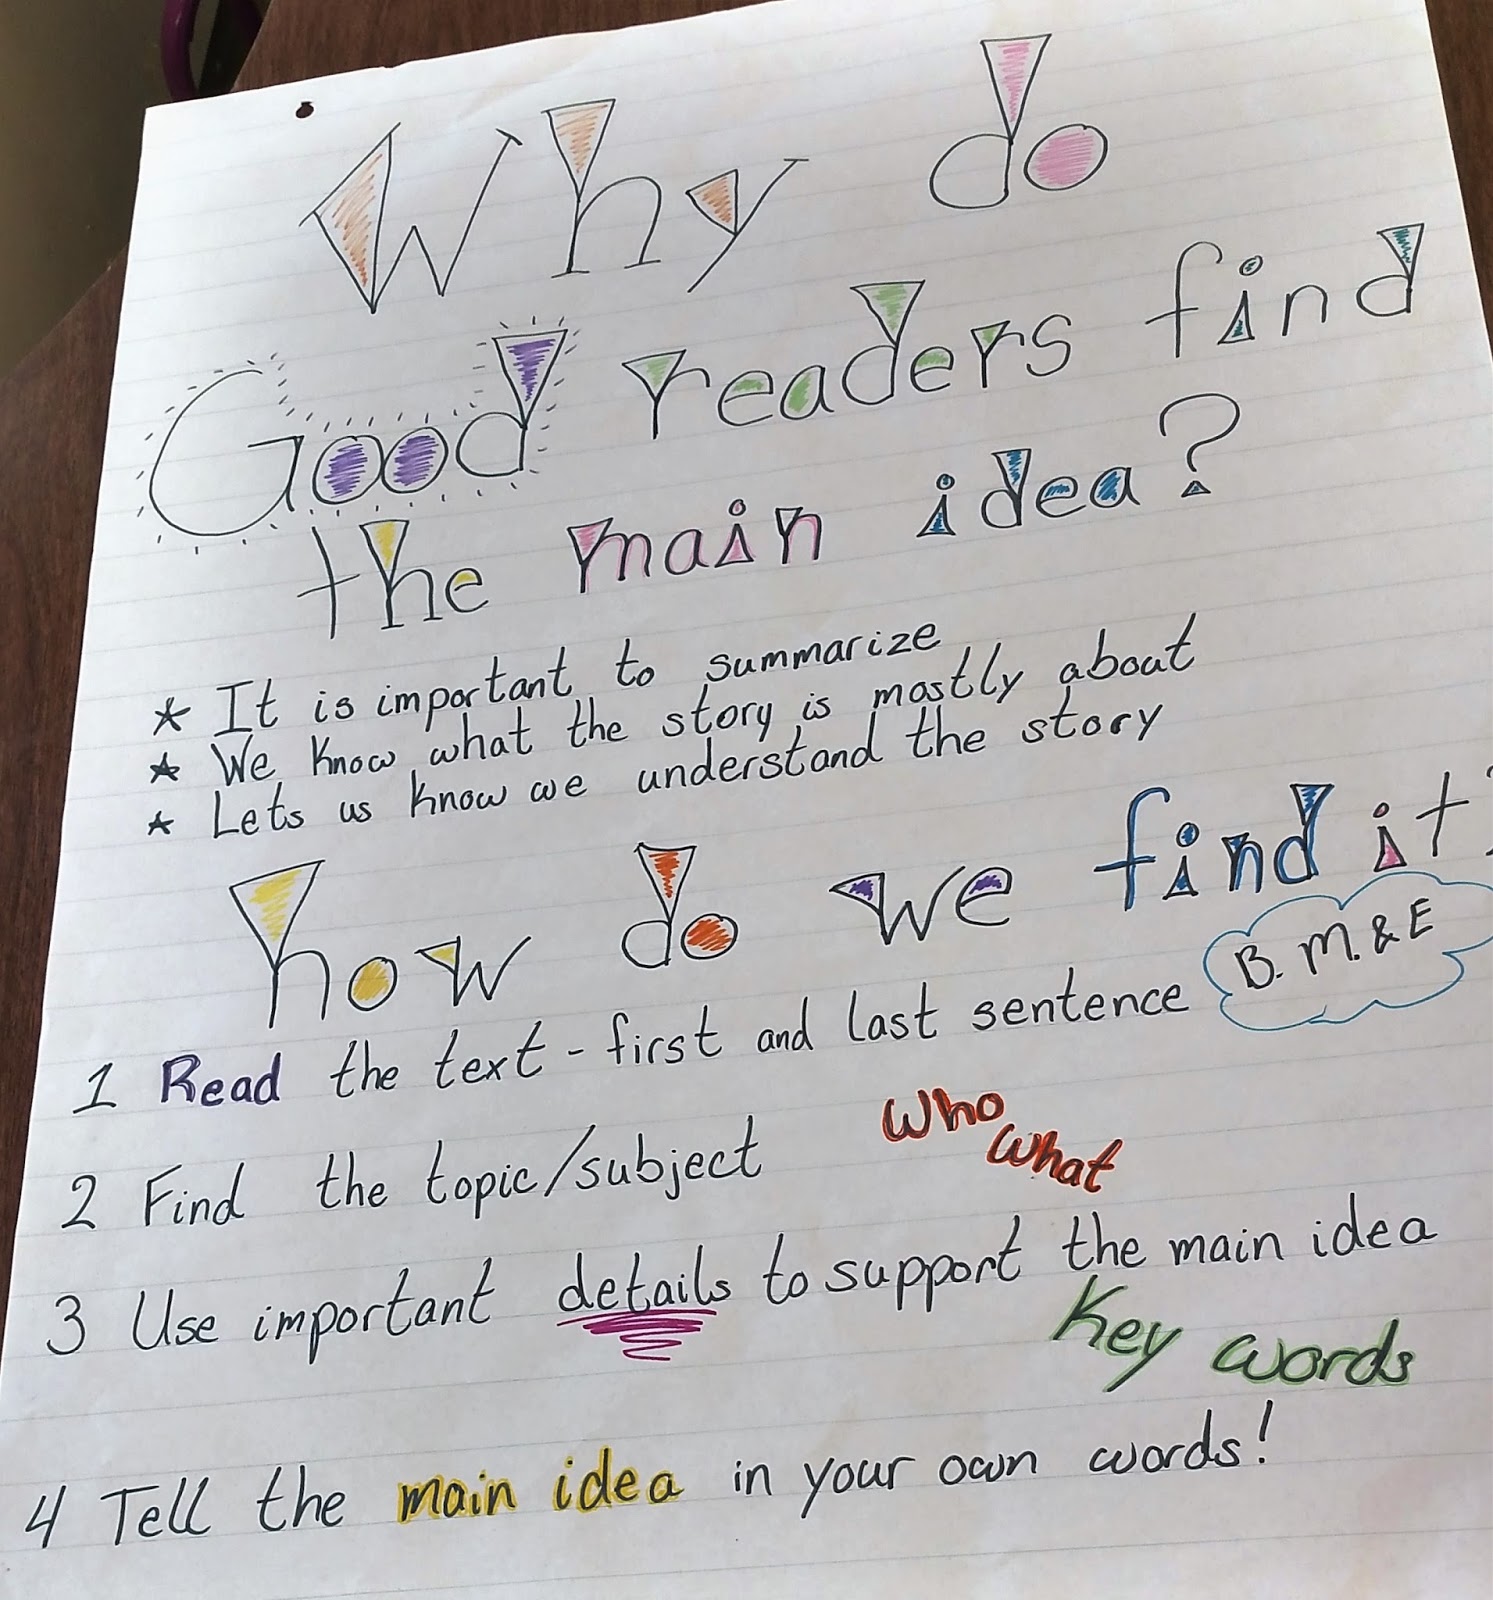 Why do
Good readers find
the main idea?
* It is important to summarize
* We know what the story is mostly about
* Lets us know we understand the story
how do we find it?
B. M. & E
1 Read the text - first and last sentence
2 Find the topic/subject
Who
What
3 Use important details to support the main idea
Key words
4 Tell the main idea in your own words!